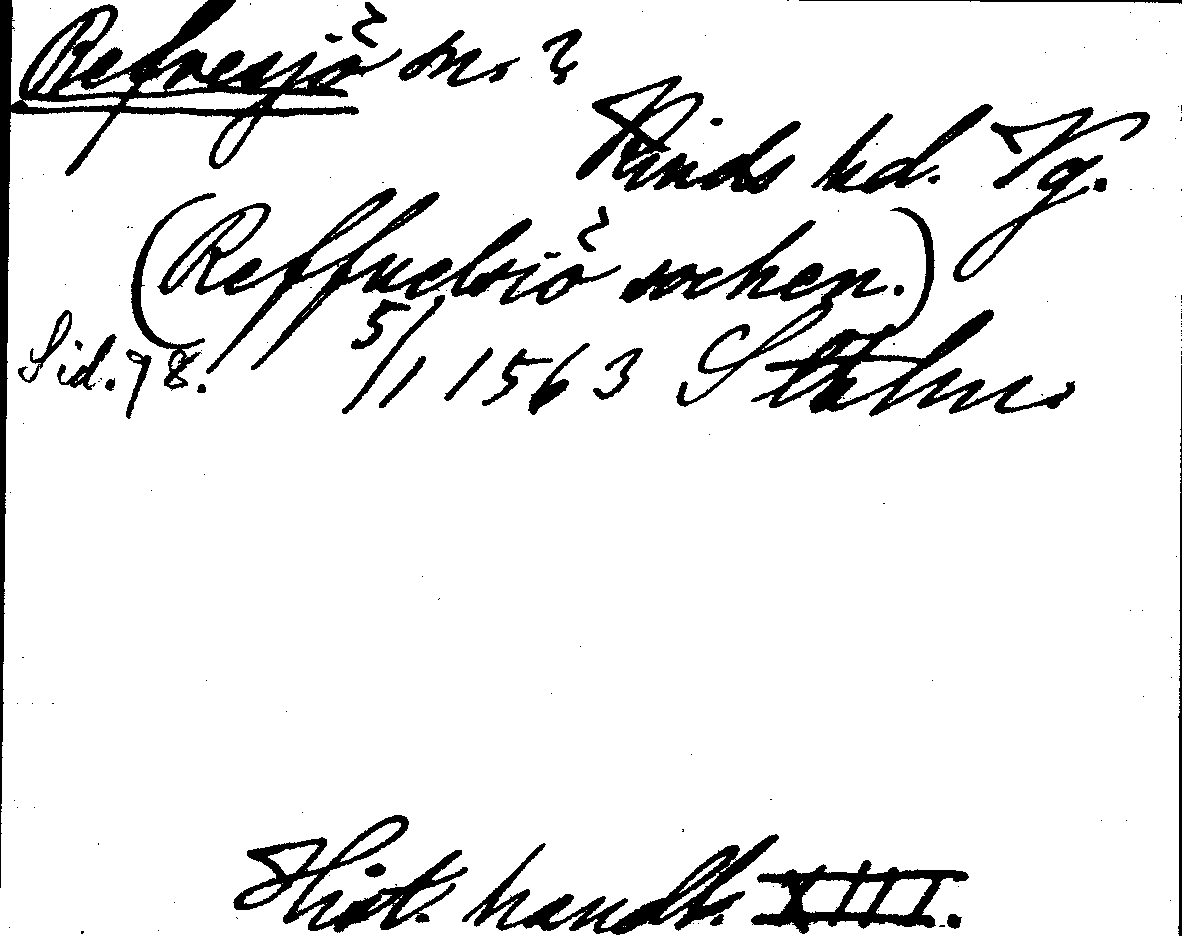 Refvesjö sn.?
Kinds hd. Vg.
(Reffuelsiö sochen.)
Sid. 98. 5/1 1563 Sthlm.
Hist. handl. XIII.